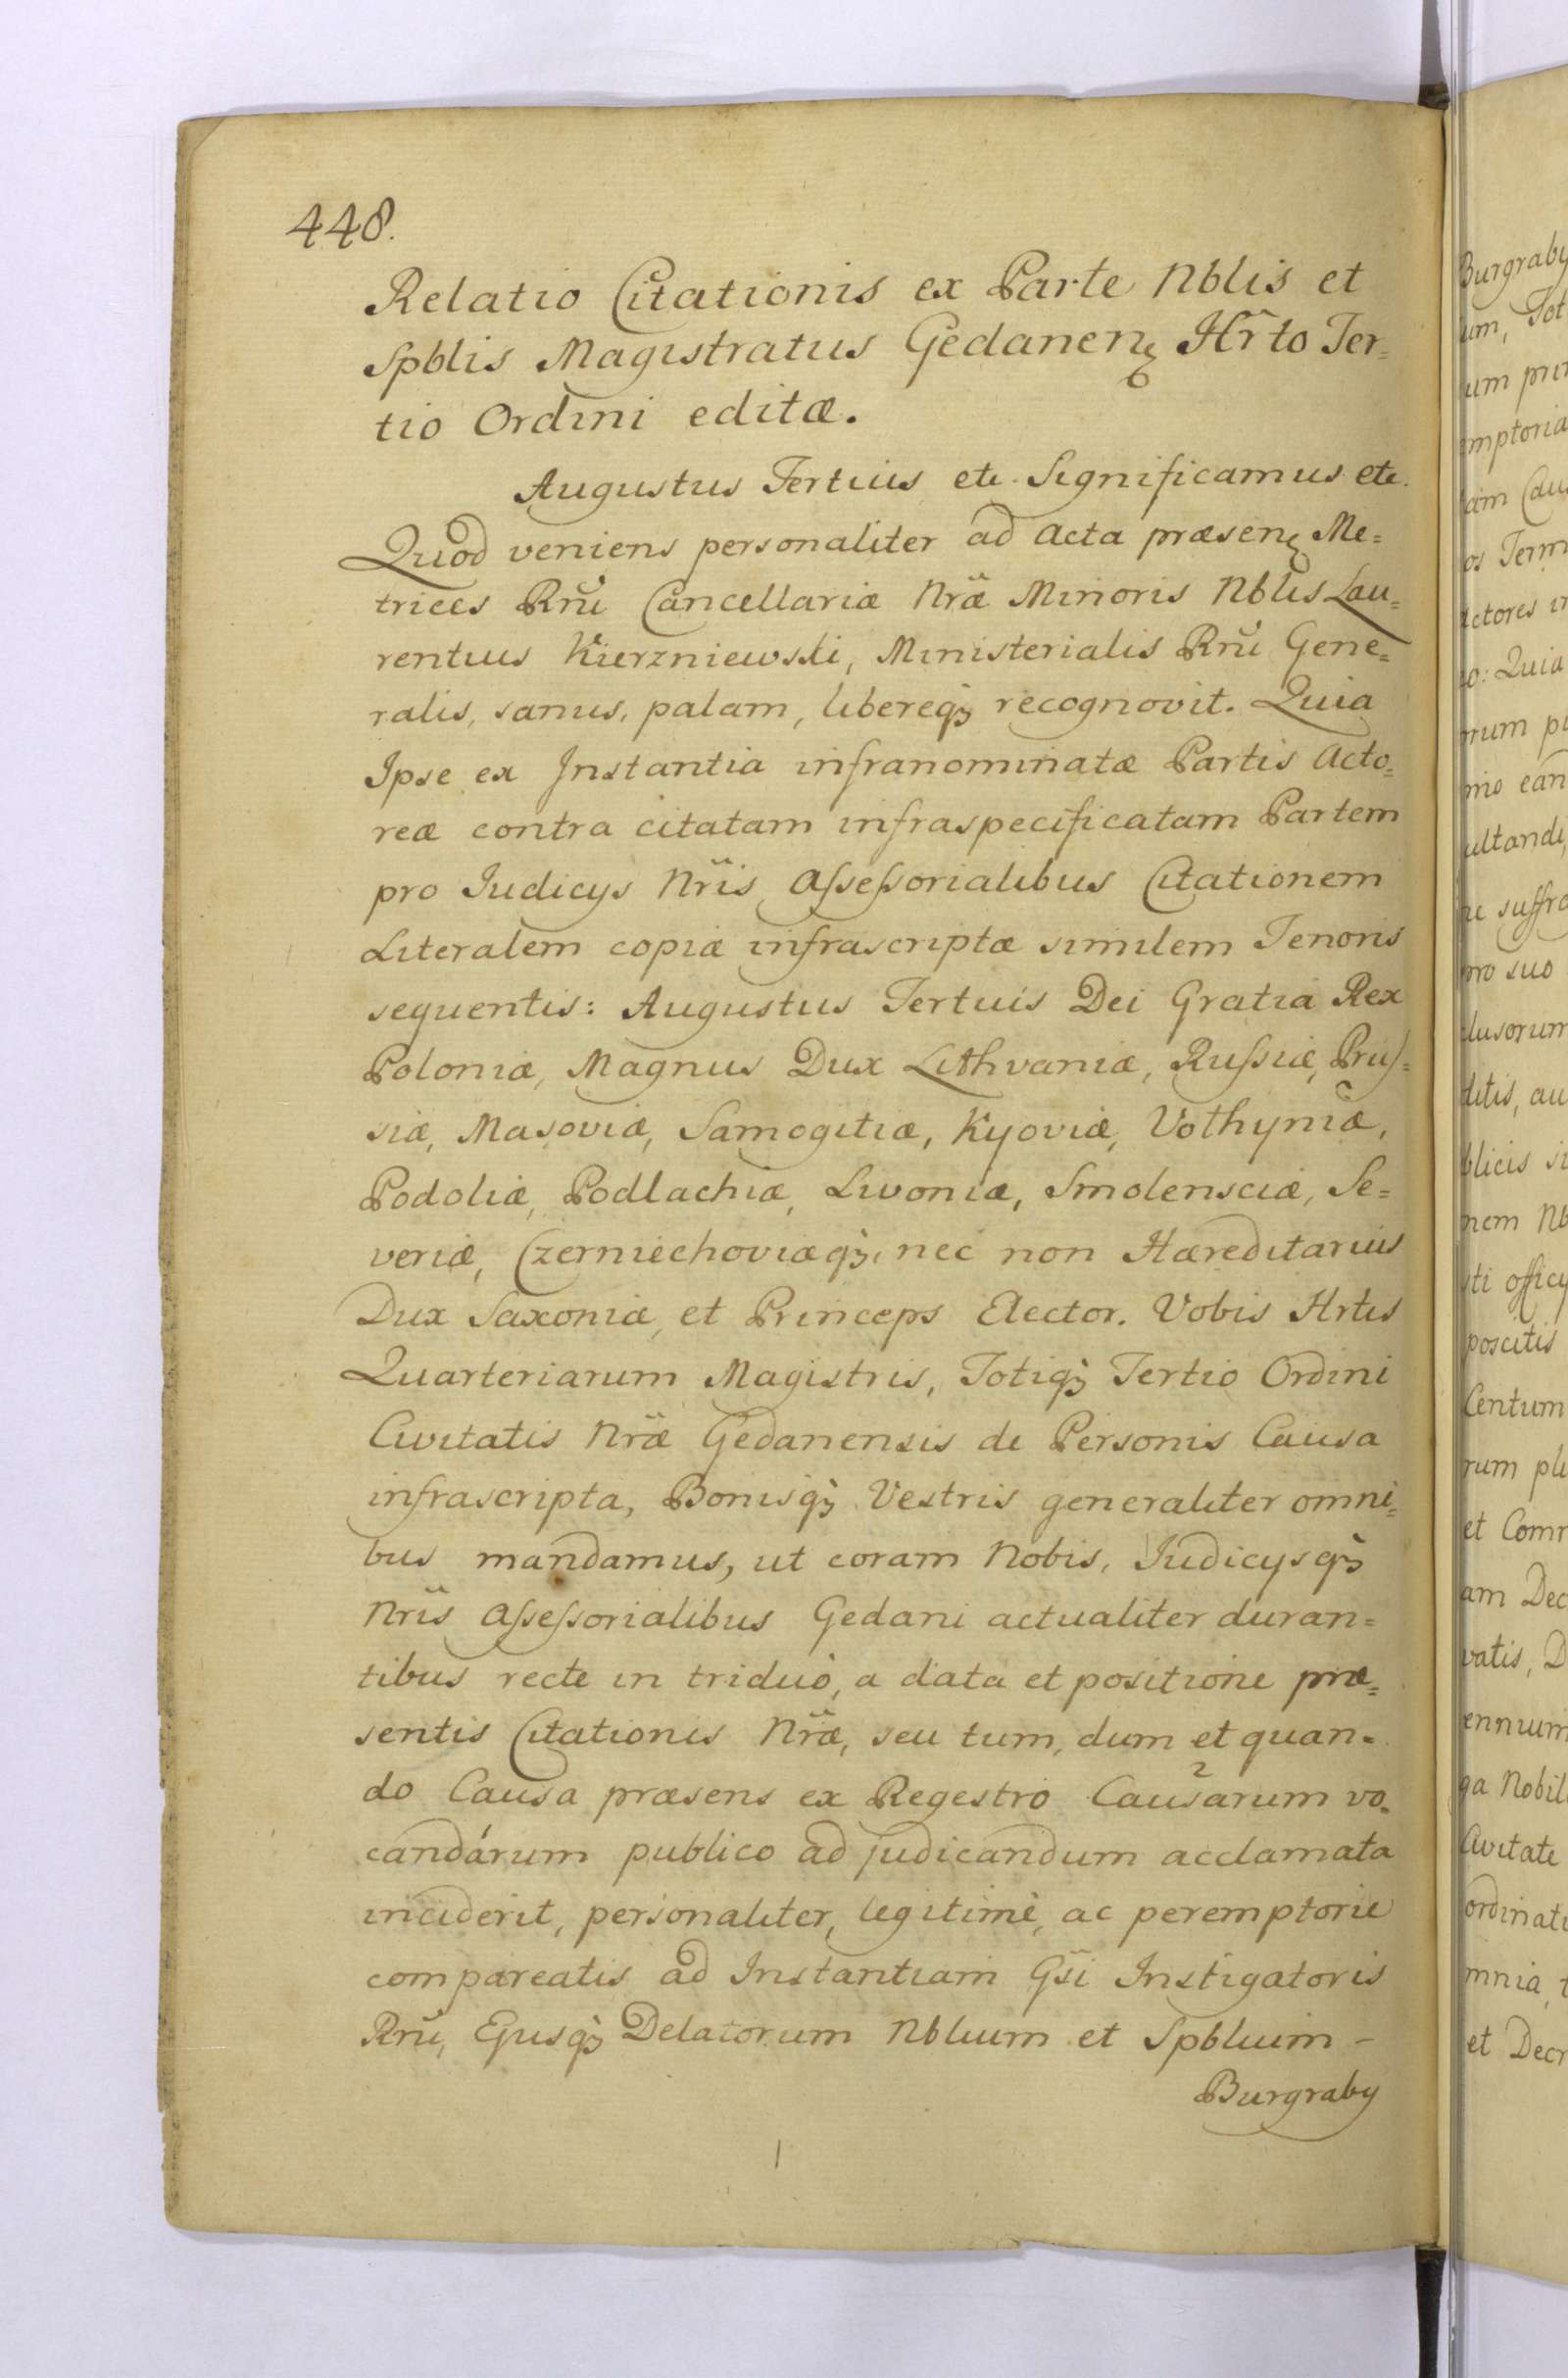 448.
Relatio Citationis ex Parte Nblis et
Spblis Magistratus Gedanenę Hr̃to Ter=
tio Ordini editæ.
Augustus Tertius etc. Significamus etc.
Quod veniens personaliter ad Acta præsenę Me=
trices Rñi Cancellariæ Nr̃æ Minoris Nblis Lau=
rentius Kierzniewski, Ministerialis Rñi Gene=
ralis, sanus, palam, libereqꝫ recognovit. Quia
Ipse ex Instantia infranominatæ Partis Acto=
reæ contra citatam infraspecificatam Partem
pro Iudicys Nr̃is Aſseſsorialibus Citationem
Literalem copiæ infrascriptæ similem Tenoris
sequentis: Augustus Tertuis Dei Gratia Rex
Poloniæ, Magnus Dux Lithvaniæ, Ruſsiæ, Pruſ=
siæ, Masoviæ, Samogitiæ, Kyoviæ, Volhyniæ,
Podoliæ, Podlachiæ, Livoniæ, Smolensciæ, Se=
veriæ, Czerniechoviæqꝫ, nec non Hæreditarius
Dux Saxoniæ, et Princeps Elector. Vobis Hrtis
Quarteriarum Magistris, Totiqꝫ Tertio Ordini
Civitatis Nr̃æ Gedanensis de Personis Causa
infrascripta, Bonisqꝫ Vestris generaliter omni=
bus mandamus, ut coram Nobis, Iudicysqꝫ
Nr̃is Aſseſsorialibus Gedani actualiter duran=
tibus recte in triduò, a data et positione præ=
sentis Citationis Nr̃æ, seu tum, dum et quan=
do Causa præsens ex Regestro Causarum vo=
candárum publico ad judicandum acclamata
inciderit, personaliter, legitimè, ac peremptorie
compareatis ad Instantiam Gsi Instigatoris
Rñi, Ejusqꝫ Delatorum Nblium et Spblium -
Burgraby
Burgraby
um, Tot
um pri
mptoria
am Cau
os Term
Actores in
o: Quia
rum p
mo ean
ultandi,
suffra
pro suo
lusorum
ditis, au
blicis si
nem Nb
sti officy
poscitis
Centum
rum pl
et Com
am Dec
vatis, D
ennium
ga Nobil
Civitate
ordinati
mnia, t
et Decr